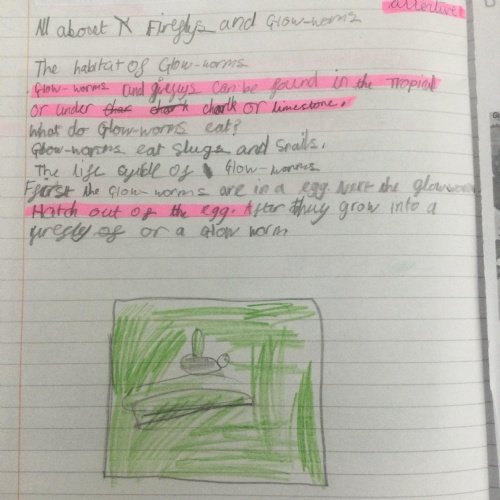 All about Fireflys and Glow-worms
The habitat of Glow-worms
Glow-worms and fireflys can be found in the Tropical
or under chalk or limestone.
What do Glow-worms eat?
Glow-worms eat slugs and snails.
The life of Glow-worms
First the Glow-worms are in a egg. Next the glow-worm
Hatch out of the egg. After they grow into a
firefly of or a Glow worm